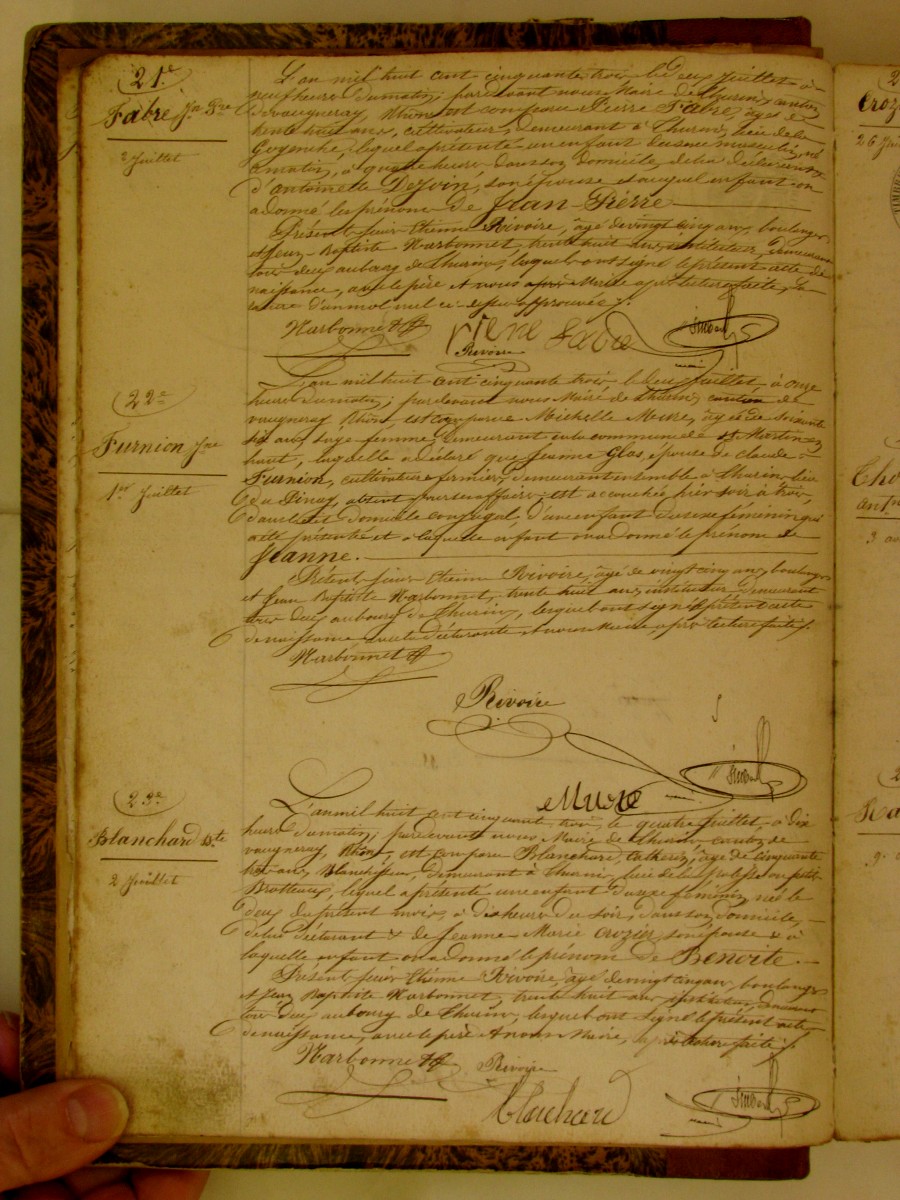 21e
Fabre Jn Pre
2 Juillet
L'an mil huit cent cinquante trois le deux Juillet à
neuf heures du matin, pardevant nous Maire de Thurins, canton
de vaugneray, Rhône est comparu Pierre Fabre, âgé de
trente huit ans, cultivateur, demeurant à Thurins, lieu de la
lequel a présenté un enfant du sexe masculin, né
ce matin, à quatre heures dans son domicile, de lui déclarant et
d'antoinette son épouse et auquel enfant on
a donné les prénoms de Jean-Pierre
Présents sieurs Etienne Rivoire, âgé de vingt cinq ans, boulanger
et Jean-Baptiste Narbonnet, trente huit ans, instituteur, demeurant
tous deux au bourg de Thurins, lesquels ont signé le présent acte de
naissance, avec le père et nous Maire après lecture faite, La
rature d'un mot nul ci-dessus approuvée.
Narbonnet
Pierre Fabre
Rivoire
22e
Furnion Jne
1er Juillet
L'an mil huit cent cinquante trois, le deux Juillet, à onze
heures du matin, pardevant nous Maire de Thurins canton de
vaugneray Rhône, est comparue Michelle Meure, âgée de soixante
six ans, sage femme, demeurant en la commune de St Martin en
haut, laquelle a déclaré que Jeanne Glas, épouse de claude
Furnion, cultivateur fermier, demeurant ensemble à Thurins lieu
du Pinay, absent pour ses affaires est accouchée hier soir à trois,
dans le dit domicile conjugal, d'une enfant du sexe féminin qui
a été présentée et à laquelle enfant on a donné le prénom de
Jeanne.
Présents sieurs Etienne Rivoire, âgé de vingt cinq ans, boulanger
et Jean Baptiste Narbonnet, trente huit ans, instituteur demeurant
tous deux au bourg de Thurins, lesquels ont signé le présent acte
de naissance avec la déclarante et nous Maire, après lecture faite.
Narbonnet
Rivoire
Mure
23e
Blanchard Bte
2 Juillet
L'an mil huit cent cinquante trois, le quatre Juillet, à dix
heures du matin, pardevant nous Maire de Thurins canton de
vaugneray, Rhône, est comparu Blanchard, âgé de cinquante
trois ans, Blanchisseur, demeurant à Thurins, lieu de
Brotteaux, lequel a présenté une enfant du sexe féminin, née le
deux du présent mois, à dix heures du soir, dans son domicile,
de lui déclarant & de Jeanne-Marie Crozier, son épouse & à
laquelle enfant on a donné le prénom de Benoite.
Présents sieurs Etienne Rivoire, âgé de vingt cinq ans, boulanger
et Jean Baptiste Narbonnet, trente huit ans, instituteur, demeurant
tous deux au bourg de Thurins, lesquels ont signé le présent acte
de naissance, avec le père et nous Maire, après lecture faite.
Narbonnet
Rivoire
Blachard
26 Jui
3